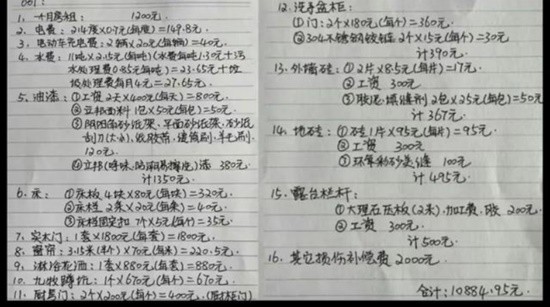 1、一个月房租: 1200元.
2、电费: 214度×0.7元(每度)=149.8元.
3、电动车充电费: 2辆×20元(每辆)=40元.
4、水费: 11吨×2.15元(每吨)(水费每吨1.30元+污
水处理费0.85元每吨)=23.65元+垃
圾处理费每月4元=27.65元.
5、油漆: ①工资 2天×400元(每天)=800元.
②立邦面料 1包×50元(每包)=50元.
③阴阳角砂纸架、平面砂纸架、砂纸
刮刀(大小)、收胶带、美缝刷、羊毛刷、
120元.
④立邦 漆 380元.
计1350元.
6、床: ①床板 4块×80元(每块)=320元.
②床档 2条×20元(每条)=40元.
③床档固定扣 7个×5元(每个)=35元.
7、实木门: 1套×1800元(每套)=1800元.
8、窗帘: 3.15米×70元(每米)=220.5元.
9、淋浴花洒: 1套×880元(每套)=880元.
10、九牧 1个×670元(每个)=670元.
11、厨房门: 2个×200元(每个)=400元.
12、洗手盆柜:
①门: 2个×180元(每个)=360元
②304不锈钢铰链 2个×15元(每个)=30元
计390元.
13、外墙砖: ①2片×8.5元(每片)=17元.
② 工资 300元
③ 胶泥、填缝剂 2包×25元(每包)=50元
计367元.
14、地砖: ①砖1片×95元(每片)=95元.
② 工资 300元
③ 环氧彩砂美缝 100元
计495元.
15、露台栏杆:
① 大理石压板(2米)、加工费、胶 200元.
② 工资 300元.
计500元.
16、其它损伤补偿费 2000元.
合计: 10884.95元.